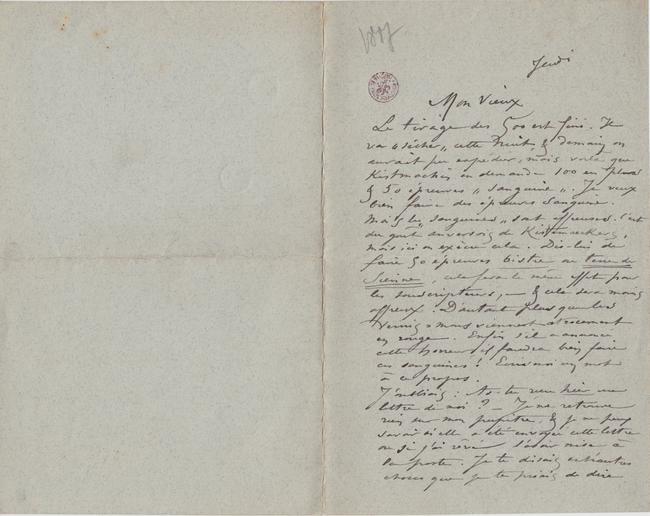 1887
Jeudi
Mon Vieux
Le tirage des 500 est fini. Je
va "sécher", cette nuit, & demain on
aurait pu expédier, mais voilà que
Kistmackers en demande 100 en plus
& 50 épreuves "sanguine". Je veux
bien faire des épreuves sanguine.
Mais les "sanguines" sont affreuses. C'est
du goût anversois de Kistemaeckers,
mais ici on exècre cela. Dis-lui de
faire 50 épreuves bistre ou terre de
Sienne, cela fera le même effet pour
les souscripteurs, — & cela sera moins
affreux ! D'autant plus que les
Vernis mous viennent atrocement
en rouge. Enfin s'il a annoncé
cette horreur il faudra bien faire
ces sanguines ! Ecris moi un mot
à ce propos.
J'oubliais : As-tu reçu hier une
lettre de moi ? — Je ne retrouve
rien sur mon pupitre, & je ne peux
savoir si elle a été envoyée cette lettre
ou si j'ai rêvé l'avoir mise à
la poste. Je te disais entr'autres
choses que je te priais de dire